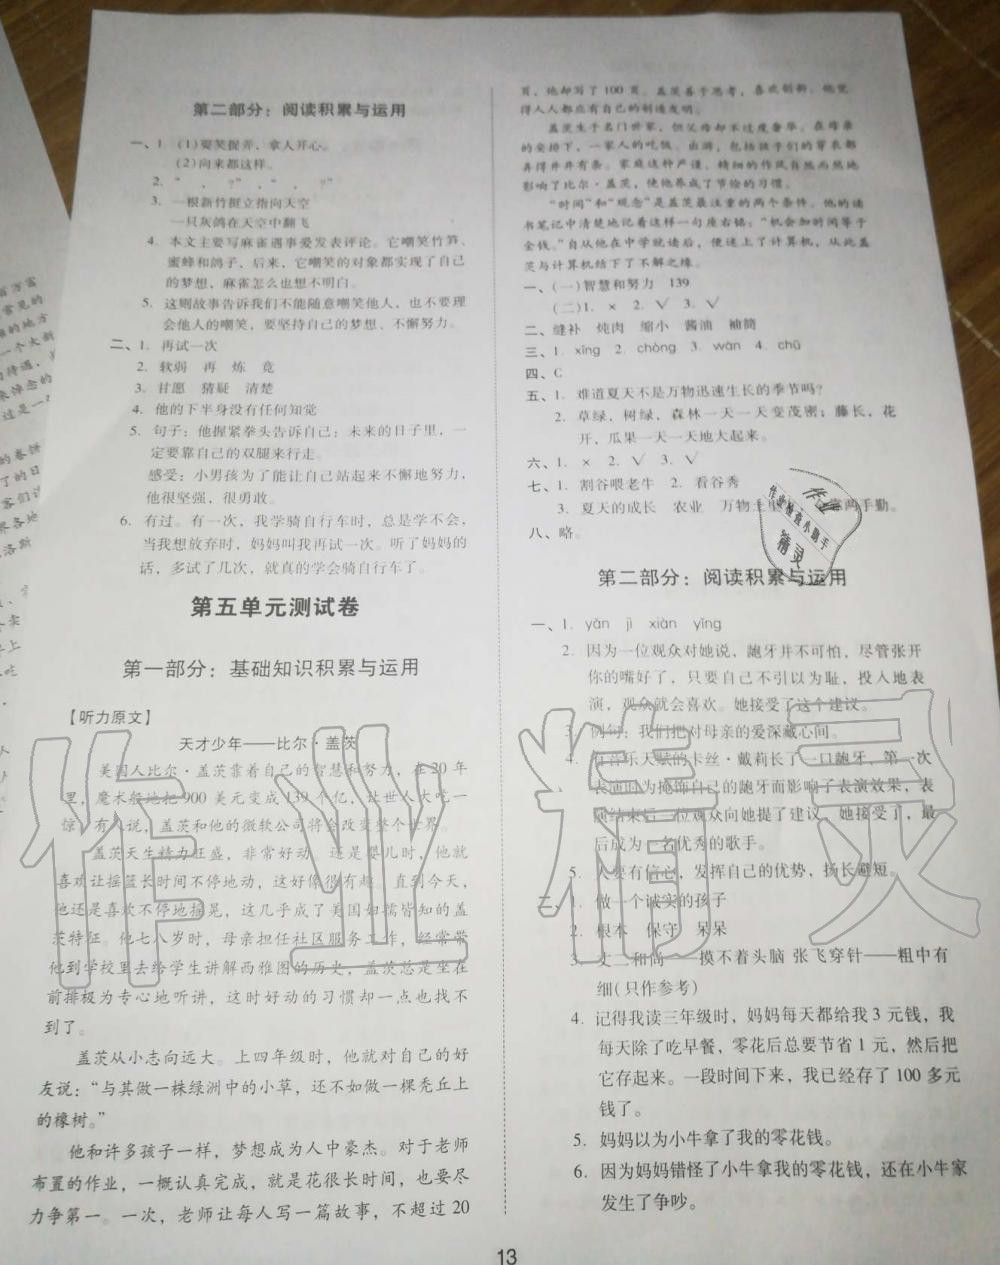 第二部分：阅读积累与运用
一、1. (1)耍笑捉弄，拿人开心。
(2)向来都这样。
2. “ ， ？”，“ ， ？”
3. 一根新竹挺立指向天空
一只灰鸽在天空中翻飞
4. 本文主要写麻雀遇事爱发表评论。它嘲笑竹笋、
蜜蜂和鸽子，后来，它嘲笑的对象都实现了自己
的梦想，麻雀怎么也想不明白。
5. 这则故事告诉我们不能随意嘲笑他人，也不要理
会他人的嘲笑，要坚持自己的梦想、不懈努力。
二、1. 再试一次
2. 软弱 再 炼 竟
3. 甘愿 猜疑 清楚
4. 他的下半身没有任何知觉
5. 句子：他握紧拳头告诉自己：未来的日子里，一
定要靠自己的双腿来行走。
感受：小男孩为了能让自己站起来不懈地努力，
他很坚强，很勇敢。
6. 有过。有一次，我学骑自行车时，总是学不会，
当我想放弃时，妈妈叫我再试一次。听了妈妈的
话，多试了几次，就真的学会骑自行车了。
第五单元测试卷
第一部分：基础知识积累与运用
【听力原文】
天才少年——比尔·盖茨
美国人比尔·盖茨靠着自己的智慧和努力，在 20 年
里，魔术般地把 900 美元变成 139 个亿，让世人大吃一
惊。有人说，盖茨和他的微软公司将会改变整个世界。
盖茨天生精力旺盛，非常好动。还是婴儿时，他就
喜欢让摇篮长时间不停地动，这好像很有趣。直到今天，
他还是喜欢不停地摇晃，这几乎成了美国妇孺皆知的盖
茨特征。他七八岁时，母亲担任社区服务工作，经常带
他到学校里去给学生讲解西雅图的历史，盖茨总是坐在
前排极为专心地听讲，这时好动的习惯却一点也找不
到了。
盖茨从小志向远大。上四年级时，他就对自己的好
友说：“与其做一株绿洲中的小草，还不如做一棵秃丘上
的橡树。”
他和许多孩子一样，梦想成为人中豪杰。对于老师
布置的作业，一概认真完成，就是花很长时间，也要尽
力争第一。一次，老师让每人写一篇故事，不超过 20
页，他却写了 100 页。盖茨善于思考，喜欢创新。他觉
得人人都应有自己的制造发明。
盖茨生于名门世家，但父母却不过度奢华。在母亲
的安排下，一家人的吃饭、出游，包括孩子们的穿衣都
弄得井井有条。家庭这种严谨、精细的作风自然而然地
影响了比尔·盖茨，使他养成了节俭的习惯。
“时间”和“观念”是盖茨最注重的两个条件。他的读
书笔记中清楚地记着这样一句座右铭：“机会加时间等于
金钱。”自从他在中学就读后，便迷上了计算机，从此盖
茨与计算机结下了不解之缘。
一、(一)智慧和努力 139
(二)1. × 2. √ 3. √
二、缝补 炖肉 缩小 酱油 袖筒
三、1. xīng 2. chòng 3. wān 4. chǔ
四、C
五、1. 难道夏天不是万物迅速生长的季节吗？
2. 草绿，树绿，森林一天一天变茂密；藤长，花
开，瓜果一天一天地大起来。
六、1. × 2. √ 3. √ 4. √
七、1. 割谷喂老牛 2. 看谷秀
3. 夏天的成长 农业 万物土里
靠两手勤。
八、略。
作业
作业检查小助手
精灵
第二部分：阅读积累与运用
一、1. yǎn jì xiàn yǐng
2. 因为一位观众对她说，龅牙并不可怕，尽管张开
你的嘴好了，只要自己不引以为耻，投入地表
演，观众就会喜欢。她接受了这个建议。
3. 例句：我们把对母亲的爱深藏心间。
4. 有音乐天赋的卡丝·戴莉长了一口龅牙，第一次
表演时为掩饰自己的龅牙而影响了表演效果，表
演结束后一位观众向她提了建议，她接受了，最
后成为一名优秀的歌手。
5. 人要有信心，发挥自己的优势，扬长避短。
二、1. 做一个诚实的孩子
2. 根本 保守 呆呆
3. 丈二和尚——摸不着头脑 张飞穿针——粗中有
细(只作参考)
4. 记得我读三年级时，妈妈每天都给我 3 元钱，我
每天除了吃早餐，零花后总要节省 1 元，然后把
它存起来。一段时间下来，我已经存了 100 多元
钱了。
5. 妈妈以为小牛拿了我的零花钱。
6. 因为妈妈错怪了小牛拿我的零花钱，还在小牛家
发生了争吵。
作业精灵
13